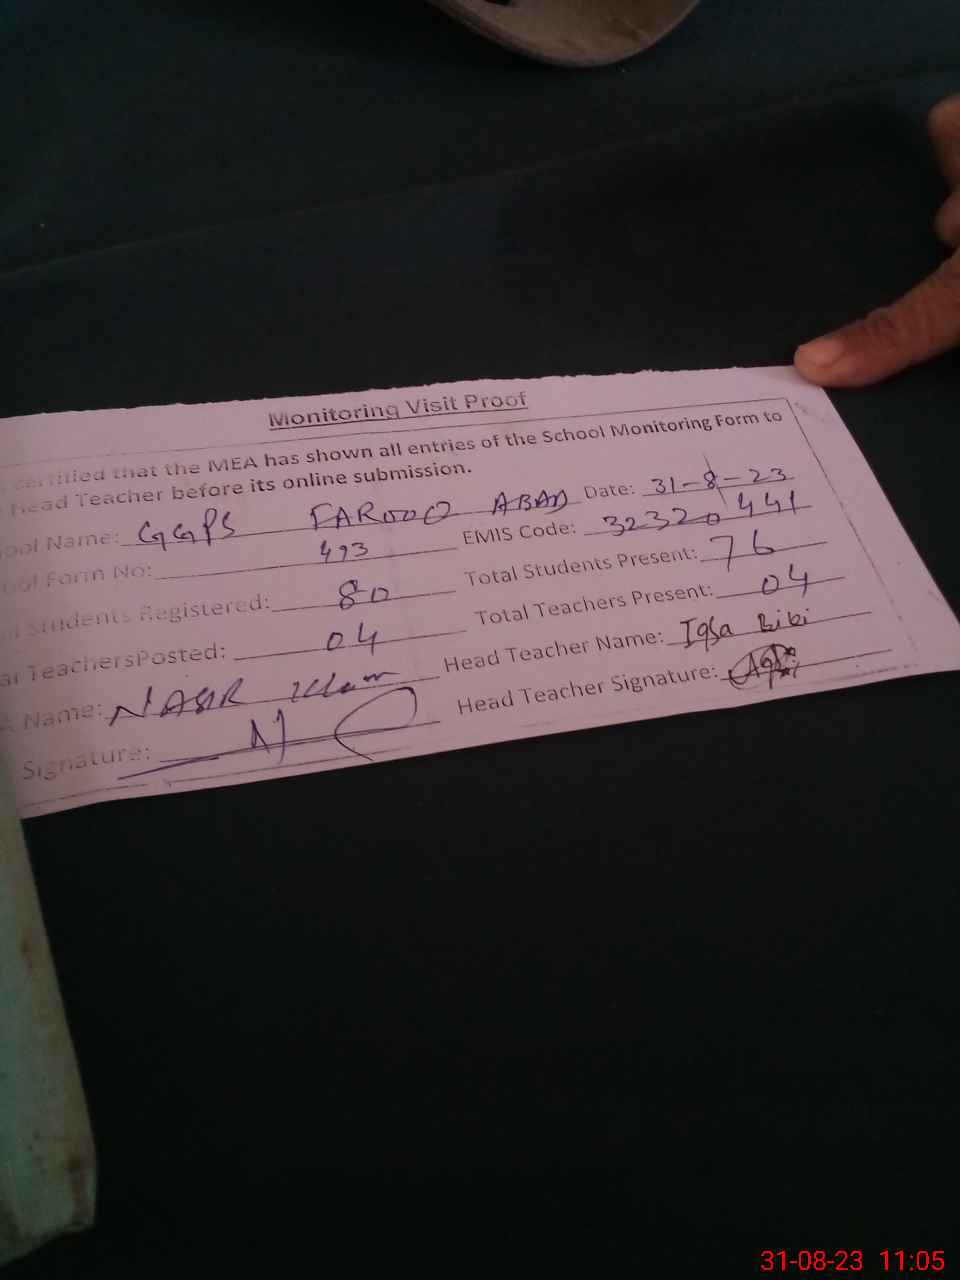 Monitoring Visit Proof
certified that the MEA has shown all entries of the School Monitoring Form to
Head Teacher before its online submission.
ool Name: GGPS FAROOQ ABAD Date: 31-8-23
ool Form No: 493 EMIS Code: 32320441
Students Registered: 80 Total Students Present: 76
TeachersPosted: 04 Total Teachers Present: 04
Name: NASIR Head Teacher Name: Iqsa Bibi
Signature: Head Teacher Signature:
31-08-23 11:05